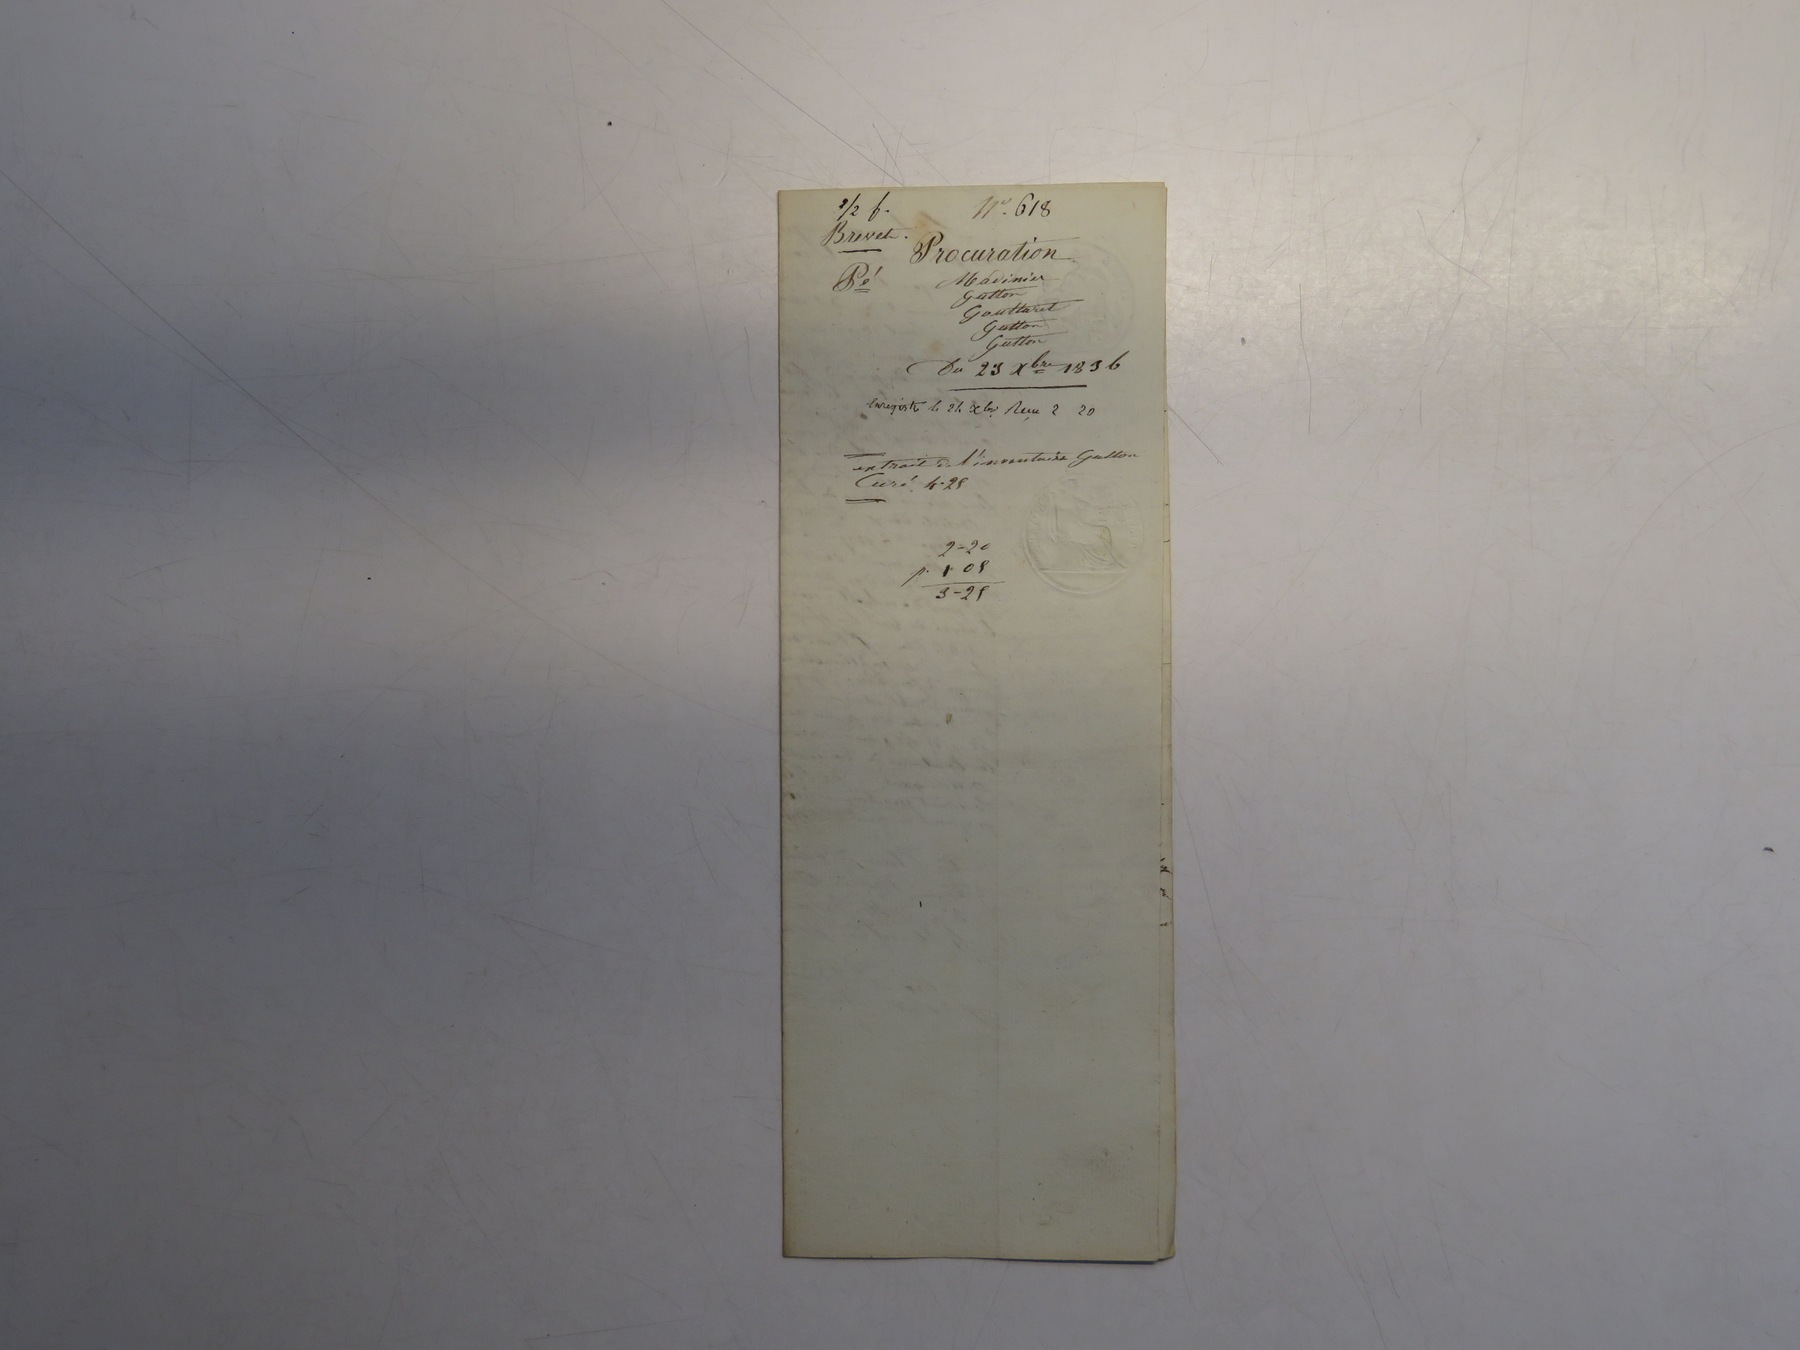 1/2 f. N°. 618
Brevet.
Procuration
Pé
Mavinier
Gutton
Gouttaret
Gutton
Gutton
Du 23 Xbre 1836
Enregistré le 24 Xbre Reçu 2 20
extrait de l'inventaire Gutton
Curé. 4-25
2-20
p. 1 05
3-25